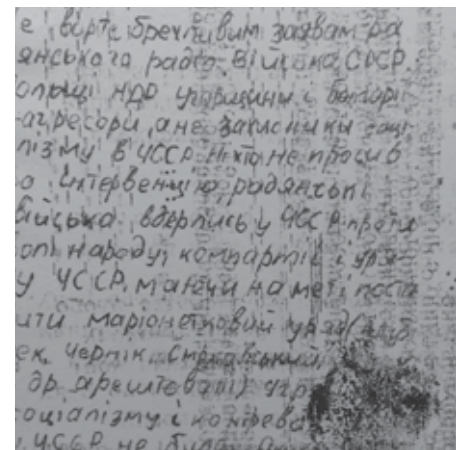 е вірте брехливим заявам ра
янського радіо. Війська СРСР,
ольщі НДР Угорщини і Болгарі
-агресори, а не захисники соці
лізму в ЧССР. Ніхто не просив
о інтервенцію, радянські
війська вдерлись у ЧССР проти
олі народу, компартії і уря-
у ЧССР, маючи на меті поста
ити маріонетковий уряд
ек, Черпік, Смрковський,
др. арештовані) угр
соціалізму і
ЧССР не була